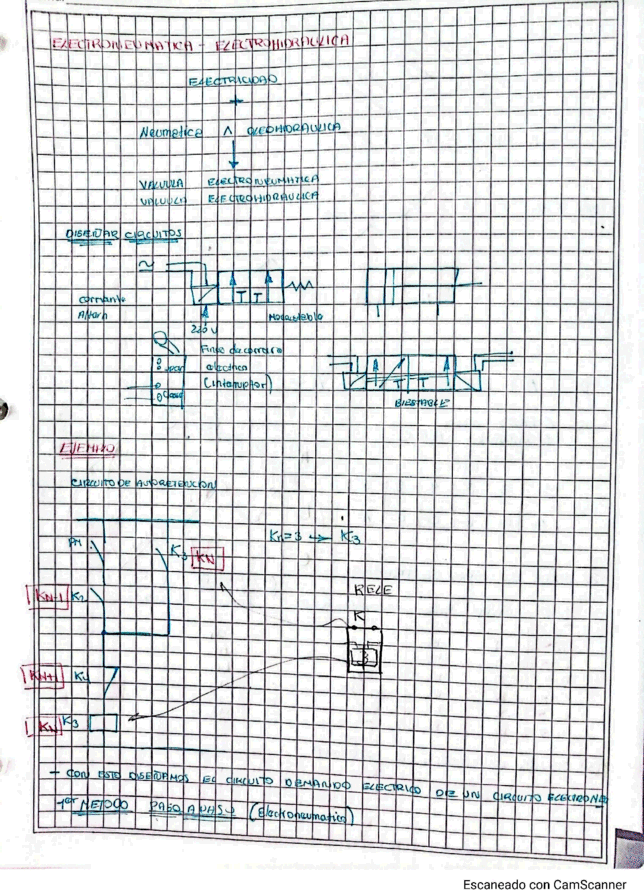 ELECTRONEUMATICA - ELECTROHIDRAULICA
ELECTRICIDAD
+
Neumatica ∧ OLEOHIDRAULICA
VALVULA ELECTRONEUMATICA
VALVULA ELECTROHIDRAULICA
DISEÑAR CIRCUITOS
~
corriente
Altern
220 V
Monoestable
Final de carrera
electrico
(interruptor)
BIESTABLE
EJEMPLO
CIRCUITO DE AUTORETENCION
PM
K3 KN
Kn=3 → K3
KN-1 K2
RELE
K
3
KN+1 K4
KN K3
- CON ESTO DISEÑAMOS EL CIRCUITO DEMANDO ELECTRICO DE UN CIRCUITO ELECTRONE
1er METODO PASO A PASO (Electroneumatico)
Escaneado con CamScanner